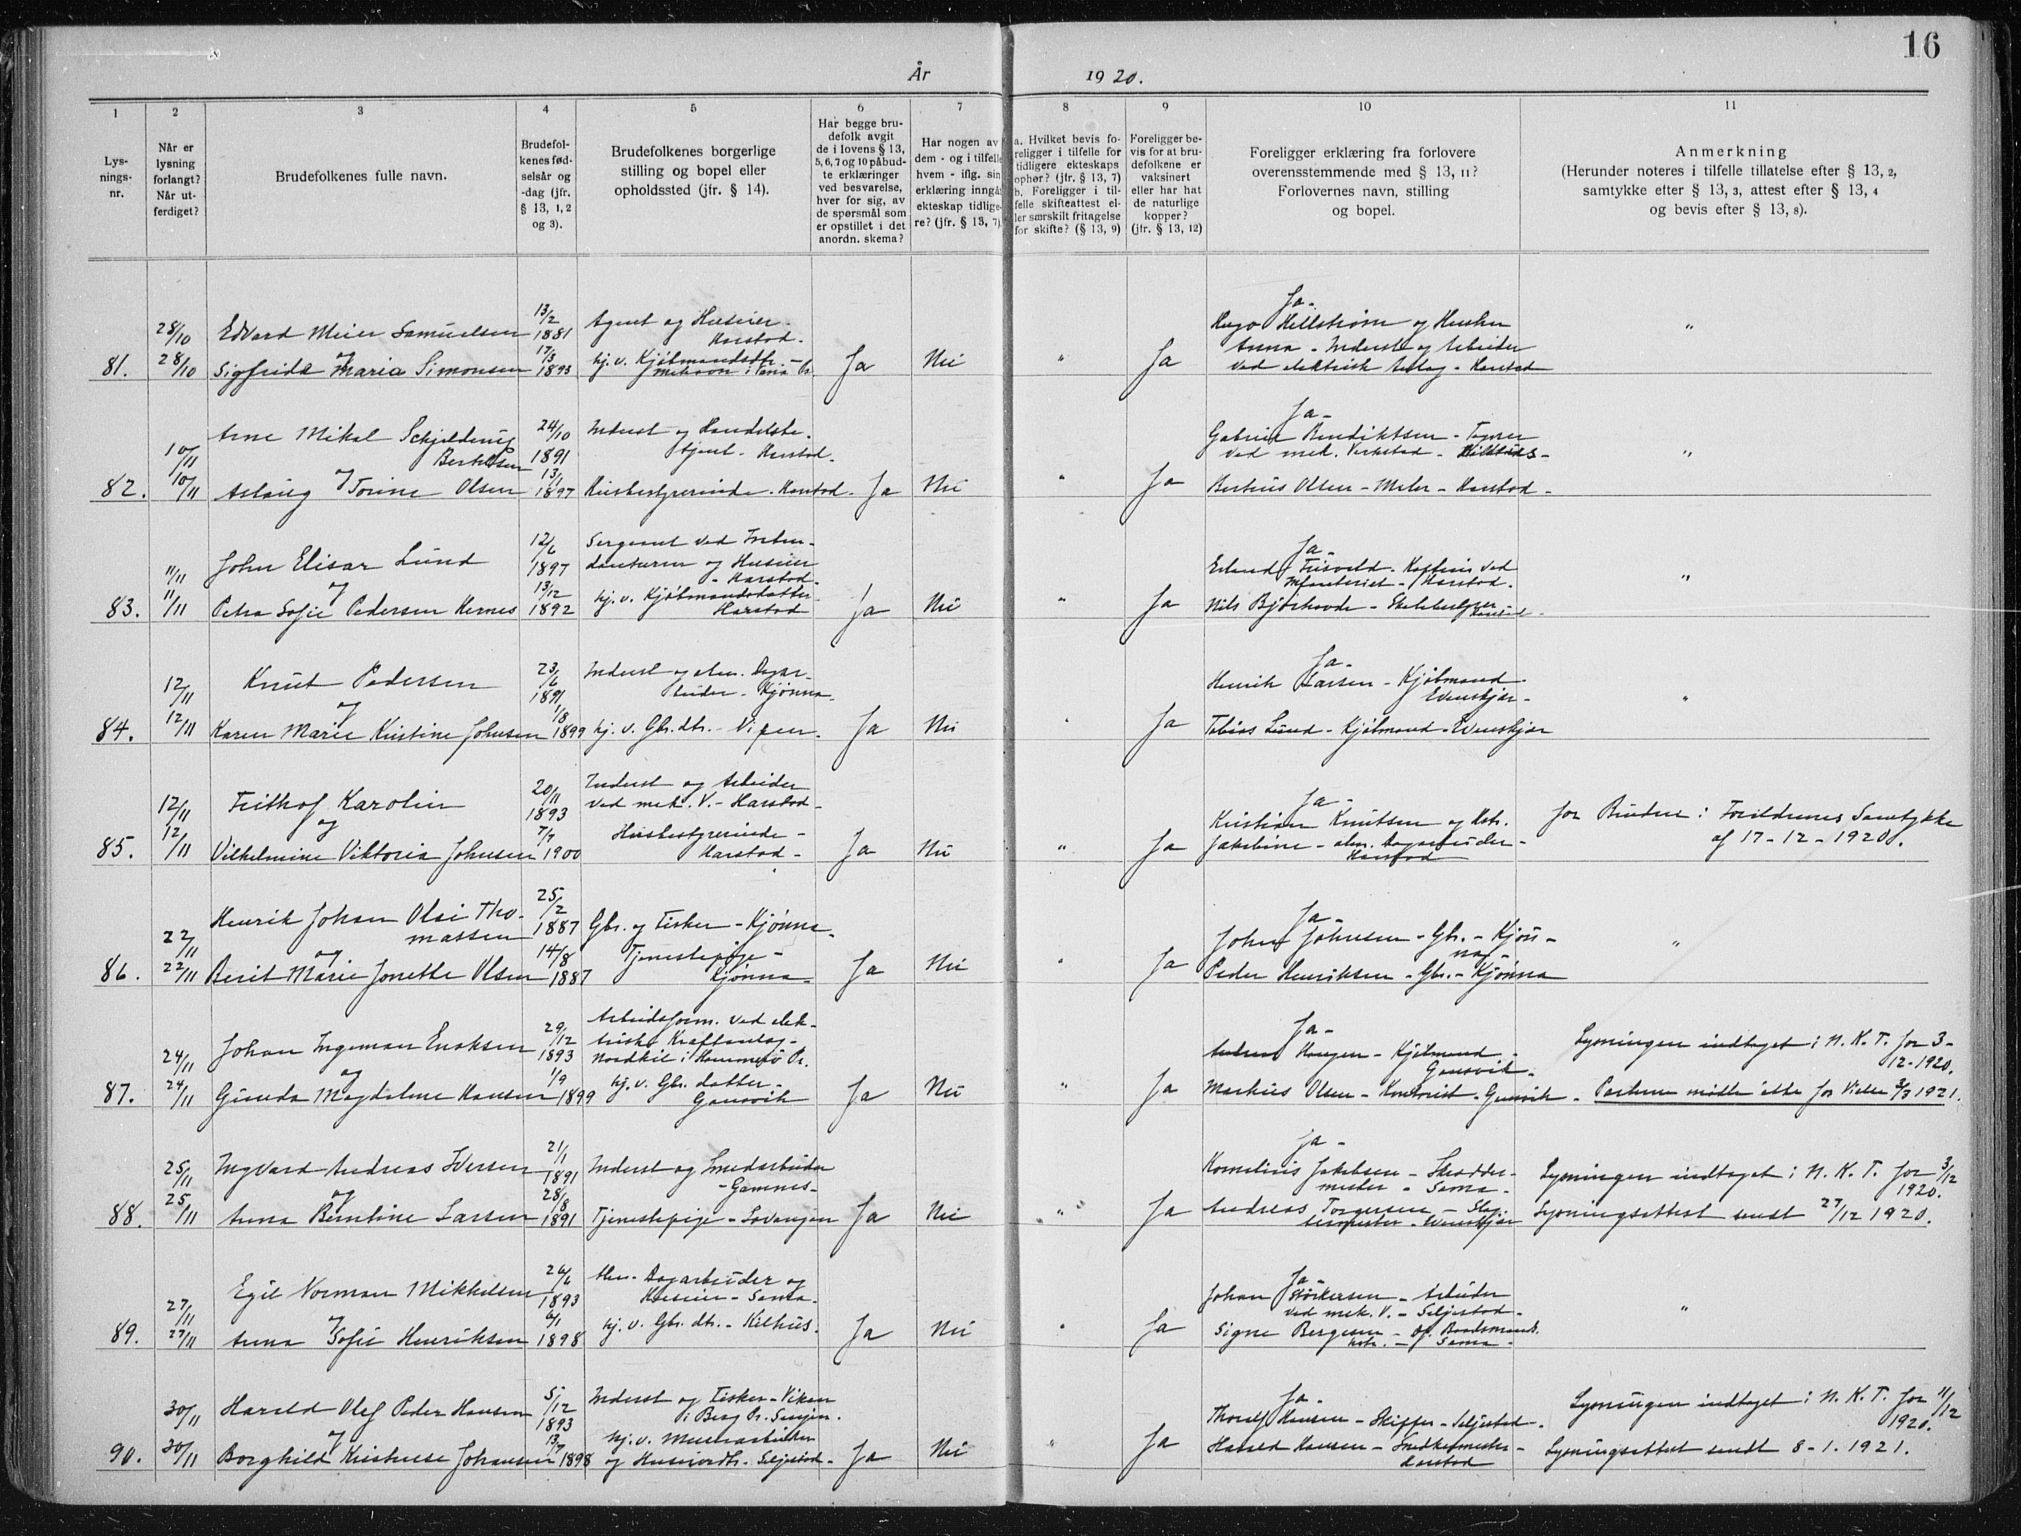 16
År 1920.
1 2 3 4 5 6 7 8 9 10 11
Lysnings-nr.
Når er lysning forlangt? Når utferdiget?
Brudefolkenes fulle navn.
Brudefolkenes fødselsår og -dag (jfr. § 13, 1, 2 og 3).
Brudefolkenes borgerlige stilling og bopel eller opholdssted (jfr. § 14).
Har begge brudefolk avgit de i lovens § 13, 5, 6, 7 og 10 påbudte erklæringer ved besvarelse, hver for sig, av de spørsmål som er opstillet i det anordn. skema?
Har nogen av dem - og i tilfelle hvem - iflg. sin erklæring inngått ekteskap tidligere? (jfr. § 13, 7)
a. Hvilket bevis foreligger i tilfelle for tidligere ekteskaps ophør? (jfr. § 13, 7)
b. Foreligger i tilfelle skifteattest eller særskilt fritagelse for skifte? (§ 13, 9)
Foreligger bevis for at brudefolkene er vaksinert eller har hat de naturlige kopper? (jfr. § 13, 12)
Foreligger erklæring fra forlovere overensstemmende med § 13, 11? Forlovernes navn, stilling og bopel.
Anmerkning
(Herunder noteres i tilfelle tillatelse efter § 13, 2, samtykke efter § 13, 3, attest efter § 13, 4 og bevis efter § 13, 8).
28/10 Edvard Meier Samuelsen 13/2 1881 Agent og Huseier - Harstad.
og
81. 28/10 Sigfrida Maria Simonsen 17/3 1893 hj. v. Kjøbmandsdtr. - Ja Nei " Ja
Ja -
Hugo Hellstrøm og Hustru
Anna - Inderst og Arbeider
ved elektrisk Anlæg - Harstad "
10/11 Arne Mikal Schjelderup Berthelsen 24/10 1891 Inderst og Handelsbetjent - Harstad.
og
82. 10/11 Aslaug Torine Olsen 13/1 1897 Husbestyrerinde - Harstad. Ja Nei " Ja
Ja -
Gabriel Bendiktsen -
ved mek. Verksted -
Bertius Olsen - Maler - Harstad - "
11/11 John Elisar Lund 12/6 1897 Sergeant ved Intendanturen og Huseier - Harstad.
og
83. 11/11 Petra Sofie Pedersen Hemes 13/12 1892 hj. v. Kjøbmandsdatter Harstad Ja Nei " Ja
Ja -
Erland Frisvold - Kaptein ved
Infanteriet - Harstad.
Nils Bjørhovde - Skolebestyrer Harstad "
12/11 Knut Pedersen 23/6 1891 Inderst og alm. Dagarbeider - Kjønna
og
84. 12/11 Karen Marie Kristine Johnsen 1/8 1899 hj. v. Gbr. dtr. - Ja Nei " Ja
Ja -
Henrik Larsen - Kjøbmand
Evenskjær -
Tobias Lund - Kjøbmand - Evenskjær "
12/11 Frithof Karolin 20/11 1893 Inderst og Arbeider ved mek. V. - Harstad -
og
85. 12/11 Vilhelmine Viktoria Johnsen 7/7 1900 Husbestyrerinde - Harstad - Ja Nei " Ja
Ja -
Kristian Knutsen og Hstr.
Jakobine - alm. Dagarbeider -
Harstad
for Bruden: Forældrenes Samtykke
af 17-12-1920.
22/11 Henrik Johan Olai Thomassen 25/2 1887 Gbr. og Fisker - Kjønna -
og
86. 22/11 Berit Marie Jonette Olsen 14/8 1887 Tjenestepige - Kjønna - Ja Nei " Ja
Ja -
John Johnsen - Gbr. - Kjønna -
Peder Henriksen - Gbr. - Kjønna "
24/11 Johan Ingeman Enoksen 29/12 1893 Arbeidsform. ved elektriske Kraftanlæg - Nordkil i Hammerø Pr.
og
87. 24/11 Gunda Magdalene Hansen 1/9 1899 hj. v. Gbr. datter - Gausvik Ja Nei " Ja
Ja -
Andreas Haugen - Kjøbmand -
Gausvik -
Markus Olsen - Kontorist - Gausvik -
Lysningen indtaget i N. K. T. for 3-12-1920.
Parterne mødte ikke for Vielse 3/3 1921.
25/11 Ingvard Andreas Iversen 21/1 1891 Inderst og Smedarbeider - Gamnes -
og
88. 25/11 Anna Berntine Larsen 28/8 1891 Tjenestepige - Lavangen Ja Nei " Ja
Ja -
Kornelius Jakobsen - Skræddermester - Sama -
Andreas Torgersen - Evenskjær
Lysningen indtaget i N. K. T. for 3/12 1920.
Lysningsattest sendt 27/12 1920.
27/11 Egil Norman Mikkelsen 26/6 1893 Alm. Dagarbeider og Huseier - Sama -
og
89. 27/11 Anna Sofie Henriksen 6/1 1898 hj. v. Gbr. dtr. - Kilhus. Ja Nei " Ja
Ja -
Johan Størkersen - Arbeider
ved mek. V. - Seljestad -
Signe Bergesen - Sama - "
30/11 Harald Olef Peder Hansen 5/12 1893 Inderst og Fisker - Viken i Berg Pr. Senjen.
og
90. 30/11 Borghild Kristense Johansen 13/7 1898 hj. v. Murerarbeider og - Seljestad - Ja Nei " Ja
Ja -
Thoralf Hansen - Skipper - Seljestad -
Harald Hansen - Snedkermester -
Harstad
Lysningen indtaget i N. K. T. for 11/12 1920.
Lysningsattest sendt 8-1.1921.